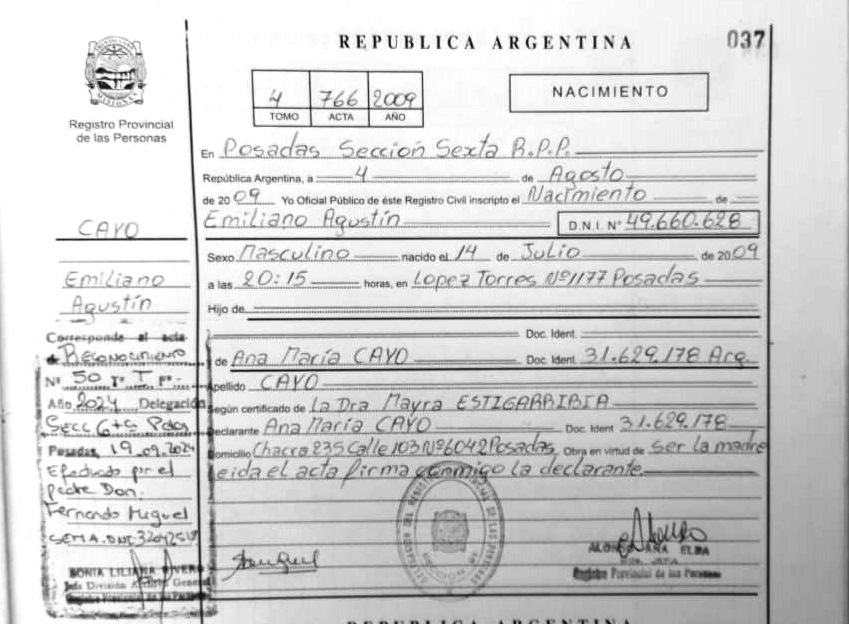 REPUBLICA ARGENTINA
037
Registro Provincial
de las Personas
4 766 2009
TOMO ACTA AÑO
NACIMIENTO
En Posadas Sección Sexta R.P.P.
República Argentina, a 4 de Agosto
de 2009 Yo Oficial Público de éste Registro Civil inscripto el Nacimiento de
Emiliano Agustín D.N.I. Nº 49.660.628
Sexo Masculino nacido el 14 de Julio de 2009
a las 20:15 horas, en Lopez Torres Nº1177 Posadas
Hijo de
Doc. Ident.
y de Ana María CAYO Doc. Ident. 31.629.178 Arg.
Apellido CAYO
Según certificado de la Dra Mayra ESTIGARRIBIA
Declarante Ana María CAYO Doc. Ident 31.629.178
Domicilio Chacra 235 Calle 103 Nº6042 Posadas Obra en virtud de ser la madre
leida el acta firma conmigo la declarante
CAYO
Emiliano
Agustín
Corresponde al acta
de Reconocimiento
Nº 50 Tº T Fº -
Año 2024 Delegación
Secc 6ta Pdas
Posadas, 19.09.2024
Efectuado por el
padre Don:
Fernando Miguel
DNI
SONIA LILIANA RIVERO
Jefe División General
Registro Provincial de las Personas
ALONSO ANA ELBA
JEFA
Registro Provincial de las Personas
REPUBLICA ARGENTINA